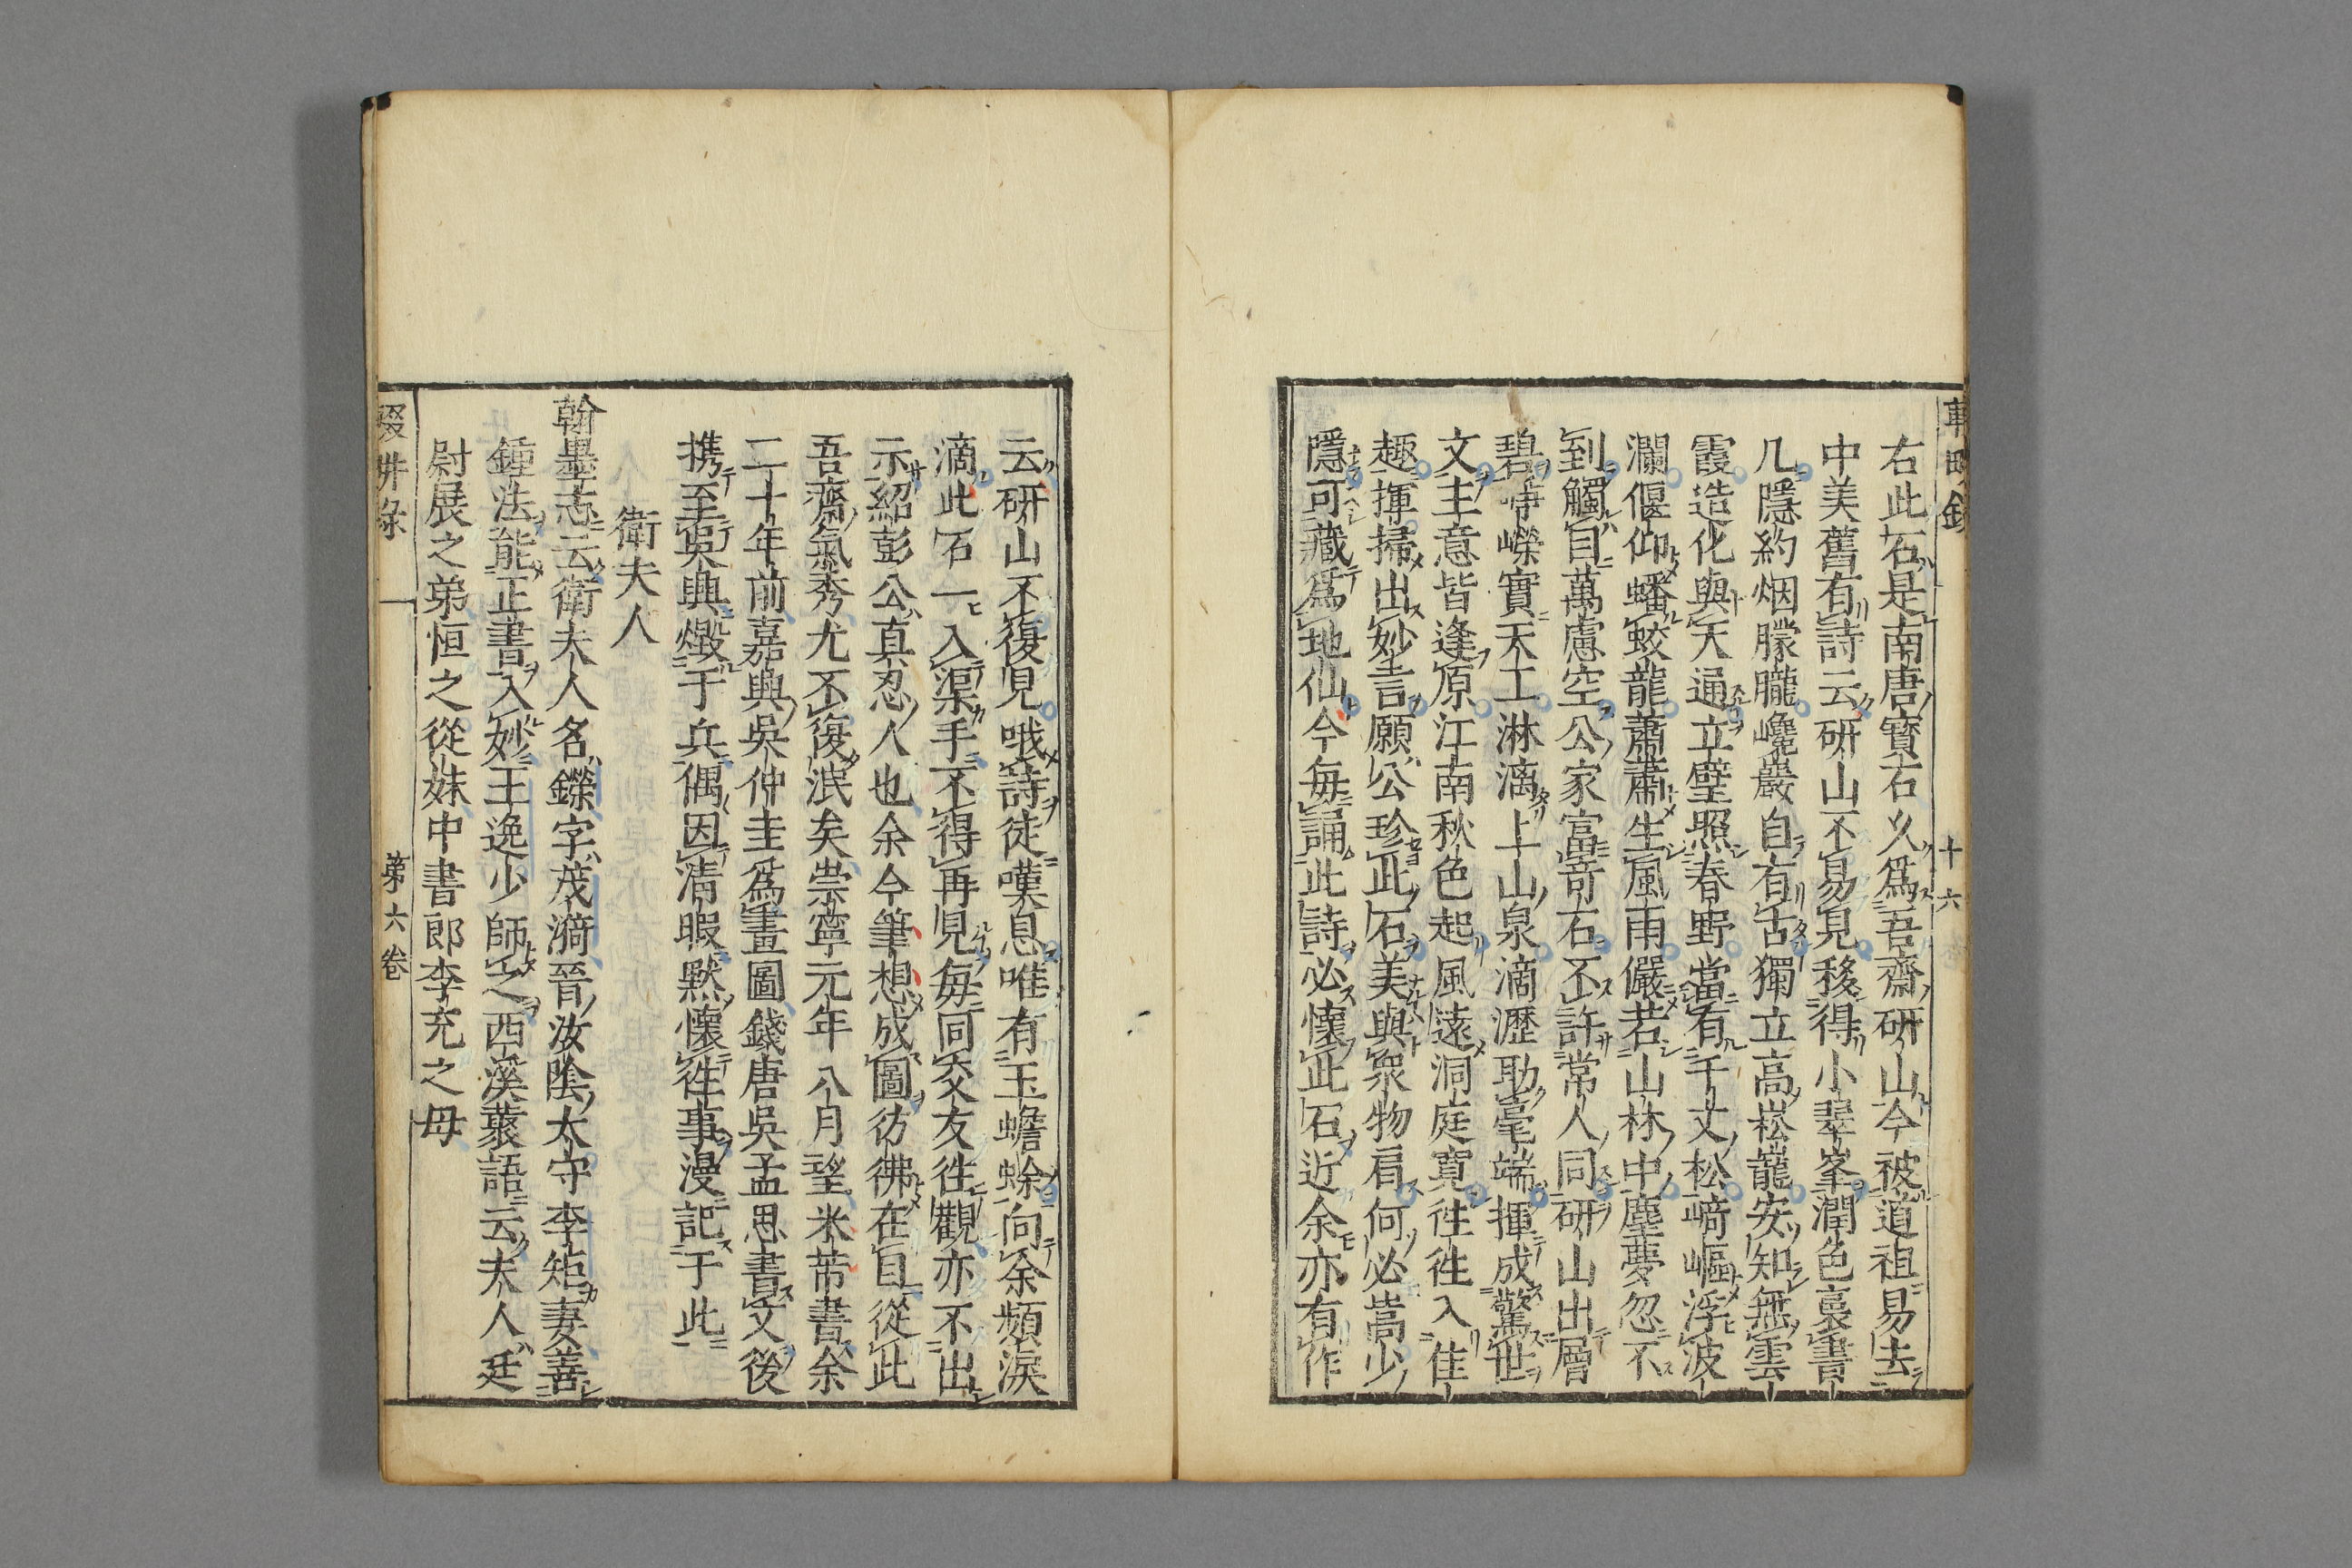 右此石是南唐寳石久爲吾齋研山今被道祖易去
中美舊有詩云研山不易見移得小翠峯潤色裛書
几隱約烟朦朧巉巖自有古獨立高崧龍安知無雲
霞造化與天通立壁照春野當有千丈松崎嶇浮波
瀾偃仰蟠蛟龍蕭蕭生風雨儼若山林中塵夢忽不
到觸目萬慮空公家富奇石不許常人同研山出層
碧崢嶸實天工淋漓上山泉滴瀝助毫端揮成驚世
文主意皆逢原江南秋色起風遠洞庭寛徃徃入佳
趣揮掃出妙言願公珍此石美與衆物肩何必嵩少
隱可藏爲地仙今每誦此詩必懷此石近余亦有作
云研山不復見哦詩徒嘆息唯有玉蟾蜍向余頻淚
滴此石一入渠手不得再見每同交友徃觀亦不出
示紹彭公真忍人也余今筆想成圖彷彿在目從此
吾齋氣秀尤不復泯矣崇寧元年八月望米芾書余
二十年前嘉興吳仲圭爲畫圖錢唐吳孟思書文後
携至吳興燬于兵偶因清暇默懷徃事漫記于此
衛夫人
翰墨志云衛夫人名鑠字茂漪晉汝陰太守李矩妻善
鍾法能正書入妙王逸少師之西溪叢語云夫人廷
尉展之弟恒之從妹中書郎李充之母
輟畊錄
第六卷
十六